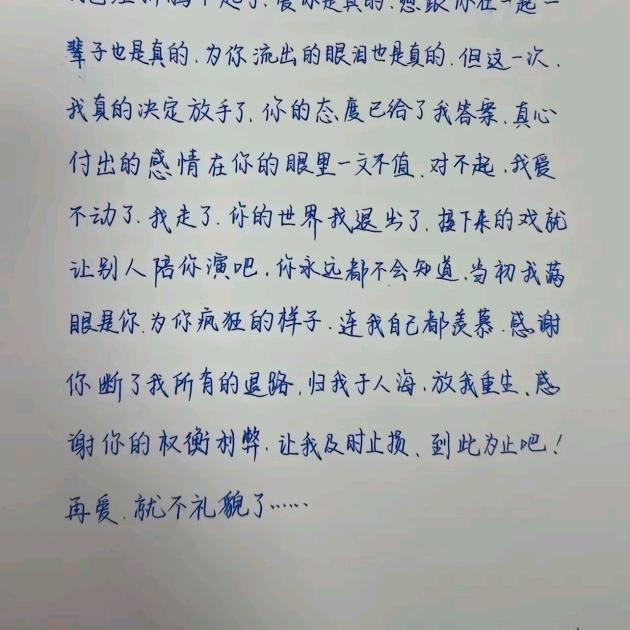 了.爱你是真的.想跟你在一起一
辈子也是真的.为你流出的眼泪也是真的.但这一次.
我真的决定放手了.你的态度已给了我答案.真心
付出的感情在你的眼里一文不值.对不起.我爱
不动了.我走了.你的世界我退出了.接下来的戏就
让别人陪你演吧.你永远都不会知道.当初我满
眼是你.为你疯狂的样子.连我自己都羡慕.感谢
你断了我所有的退路.归我于人海.放我重生、感
谢你的权衡利弊.让我及时止损、到此为止吧！
再爱.就不礼貌了……